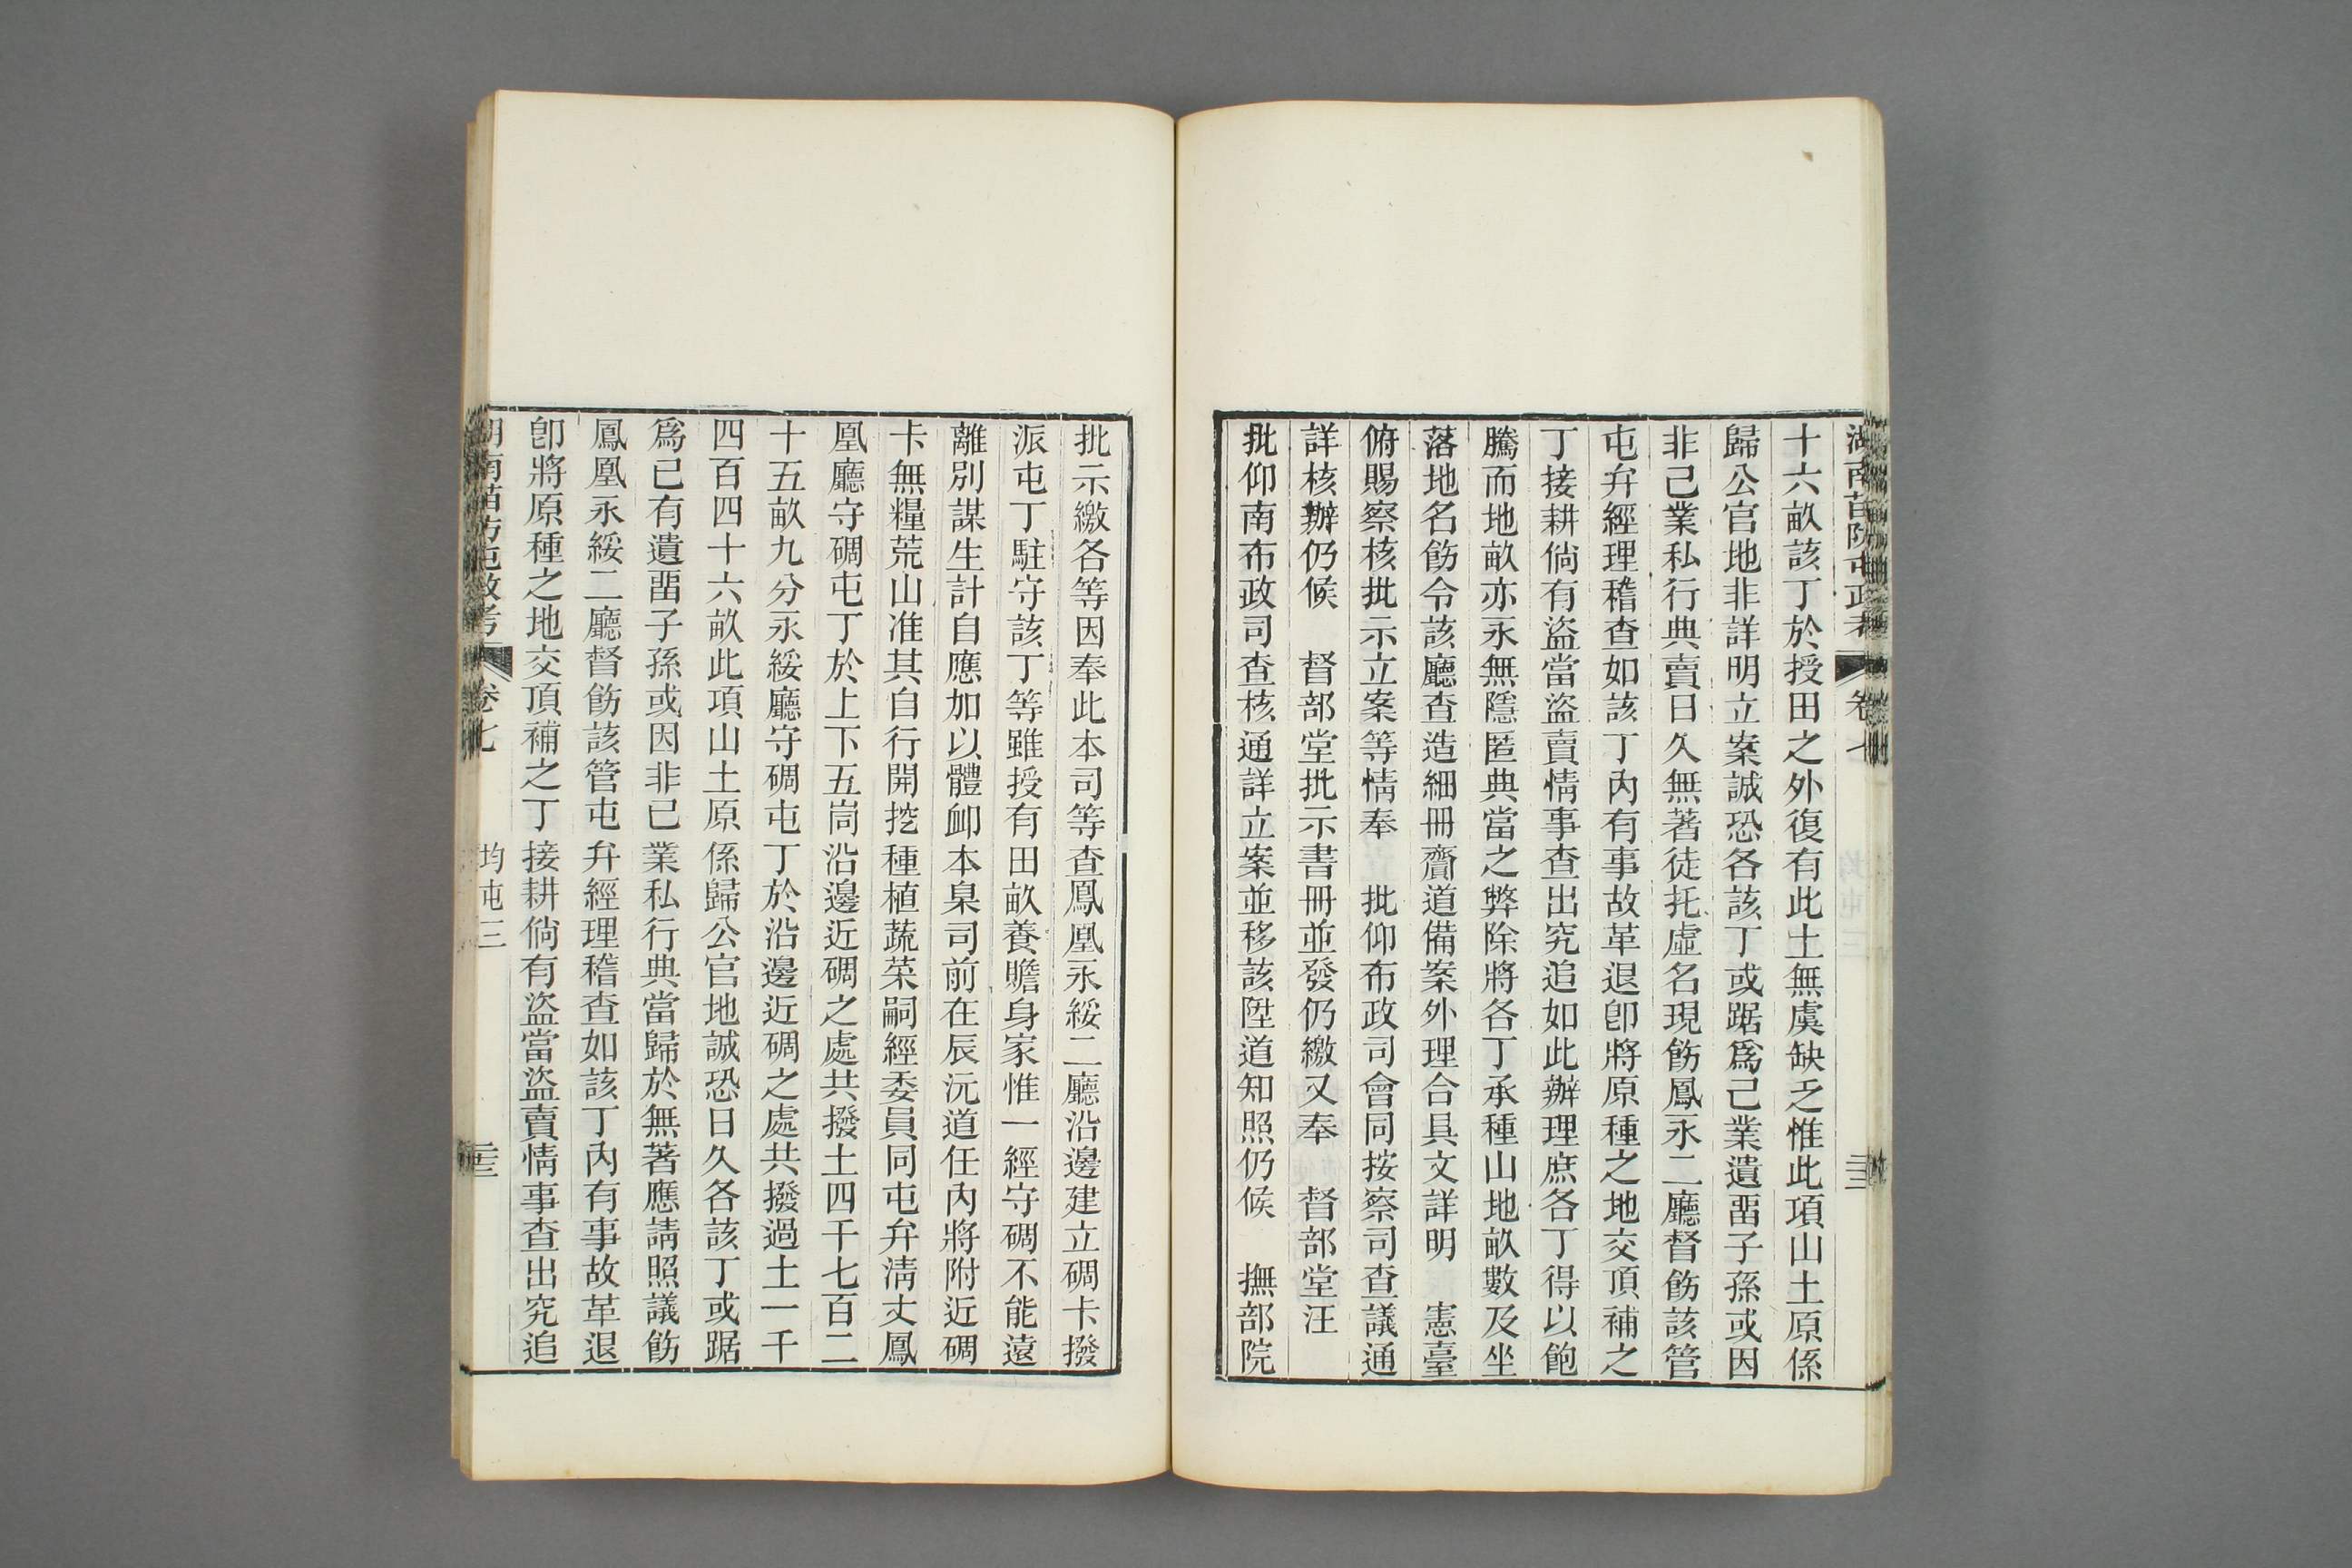 湖南苗防屯政考 卷七
十六畝該丁於授田之外復有此土無虞缺乏惟此項山土原係
歸公官地非詳明立案誠恐各該丁或踞爲己業遺畱子孫或因
非己業私行典賣日久無著徒托虛名現飭鳳永二廳督飭該管
屯弁經理稽查如該丁內有事故革退卽將原種之地交頂補之
丁接耕倘有盜當盜賣情事查出究追如此辦理庶各丁得以飽
騰而地畝亦永無隱匿典當之弊除將各丁承種山地畝數及坐
落地名飭令該廳查造細冊齎道備案外理合具文詳明 憲臺
俯賜察核批示立案等情奉 批仰布政司會同按察司查議通
詳核辦仍候 督部堂批示書冊並發仍繳又奉 督部堂汪
批仰南布政司查核通詳立案並移該陞道知照仍候 撫部院
批示繳各等因奉此本司等查鳳凰永綏二廳沿邊建立碉卡撥
派屯丁駐守該丁等雖授有田畝養贍身家惟一經守碉不能遠
離別謀生計自應加以體衈本臬司前在辰沅道任內將附近碉
卡無糧荒山准其自行開挖種植蔬菜嗣經委員同屯弁淸丈鳳
凰廳守碉屯丁於上下五峝沿邊近碉之處共撥土四千七百二
十五畝九分永綏廳守碉屯丁於沿邊近碉之處共撥過土一千
四百四十六畝此項山土原係歸公官地誠恐日久各該丁或踞
爲己有遺畱子孫或因非己業私行典當歸於無著應請照議飭
鳳凰永綏二廳督飭該管屯弁經理稽查如該丁內有事故革退
卽將原種之地交頂補之丁接耕倘有盜當盜賣情事查出究追
湖南苗防屯政考 卷七 均屯三